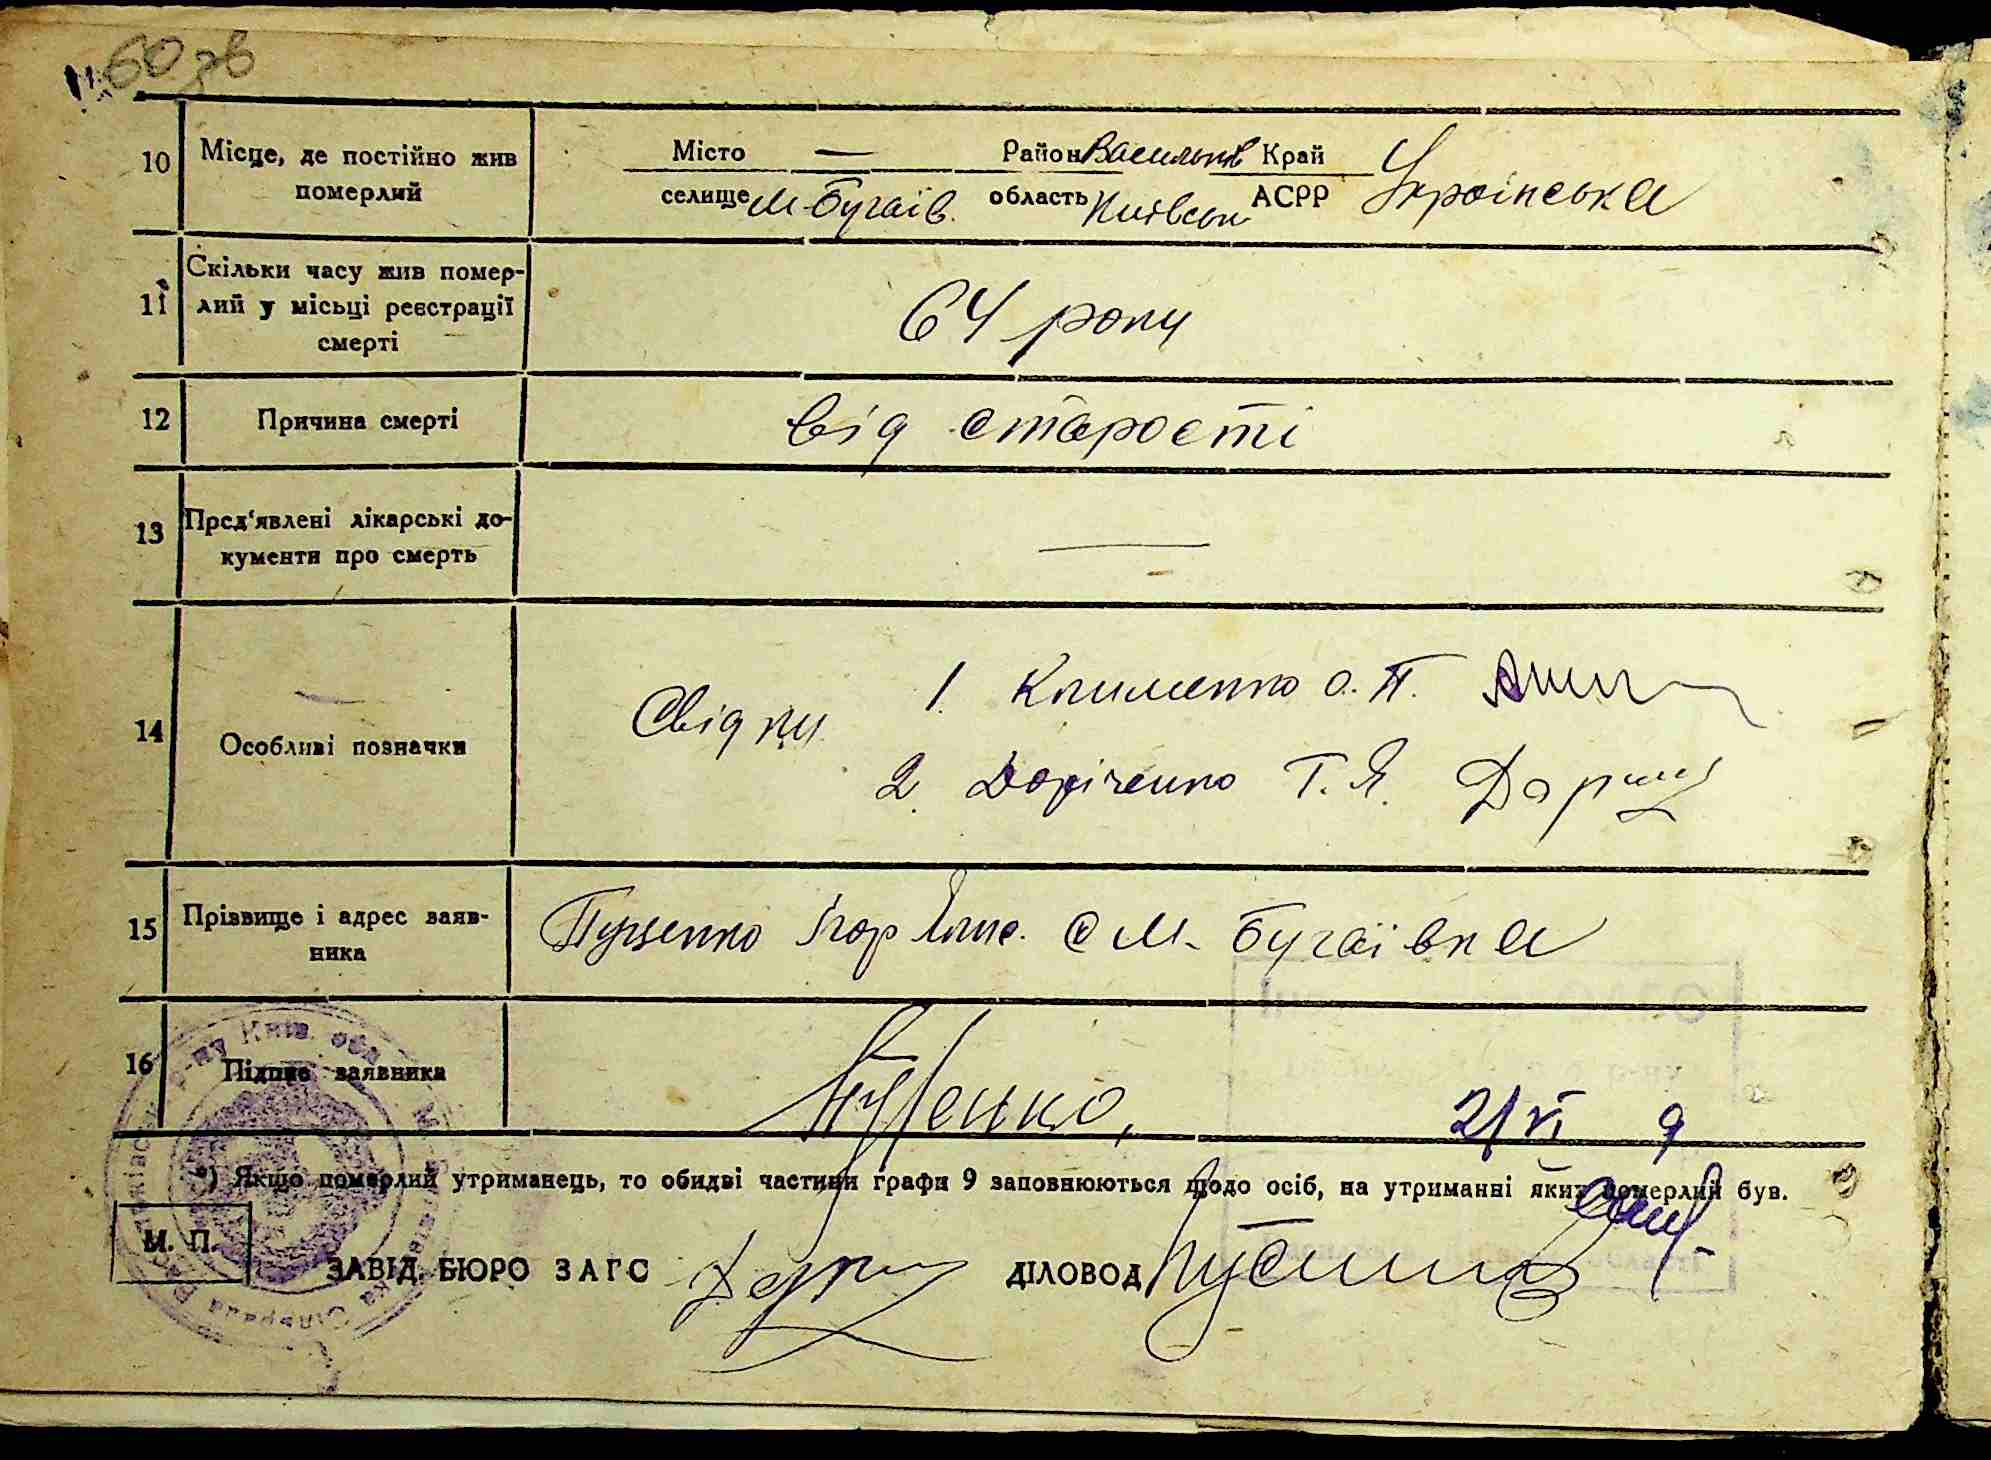 60 зв
10 Місце, де постійно жив померлий
Місто — Район Васильків Край
селище М-Бугаїв. область Київськ АСРР Українська
11 Скільки часу жив помер-
лий у місьці реєстрації
смерті
64 роки
12 Причина смерті від старості
13 Пред'явлені лікарські до-
кументи про смерть
—
14 Особливі позначки
Свідки 1. Клименко О. П.
2. Доріченко Т. Я.
15 Прізвище і адрес заяв-
ника
Пущенко Ігор с М-Бугаївка
16 Підпис заявника
21/VI
*) Якщо померлий утриманець, то обидві частини графи 9 заповнюються щодо осіб, на утриманні яких померлий був.
М. П.
ЗАВІД. БЮРО ЗАГС ДІЛОВОД